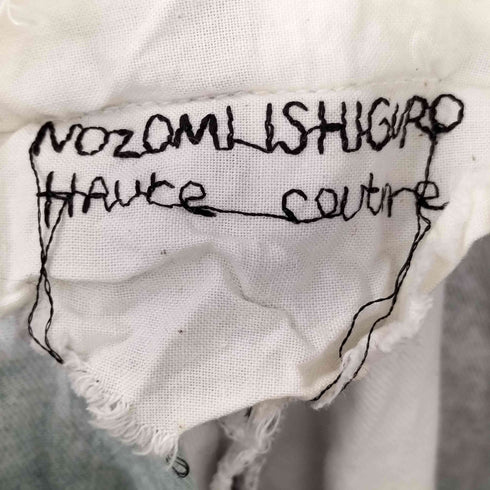 NOZOMI ISHIGURO
Haute coutre